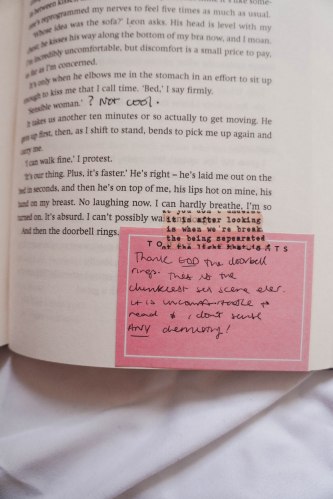 in between kiss
's reprogrammed my nerves to feel five times as much as usual.
'Whose idea was the sofa?' Leon asks. His head is level with my
chest, he kisses his way along the bottom of my bra now, and I moan.
I'm incredibly uncomfortable, but discomfort is a small price to pay,
as far as I'm concerned.
It's only when he elbows me in the stomach in an effort to sit up
enough to kiss me that I call time. 'Bed,' I say firmly.
'Sensible woman.' ? NOT COOL.
It takes us another ten minutes or so actually to get moving. He
gets up first, then, as I shift to stand, bends to pick me up again and
carry me.
'I can walk fine,' I protest.
'It's our thing. Plus, it's faster.' He's right – he's laid me out on the
bed in seconds, and then he's on top of me, his lips hot on mine, his
hand on my breast. No laughing now. I can hardly breathe, I'm so
turned on. It's absurd. I can't possibly wa
And then the doorbell rings.
it is after looking
is when we're break
the being separated
Thank GOD the doorbell
rings. This is the
clunkiest sex scene ever.
it is uncomfortable to
read & i don't sense
ANY chemistry!